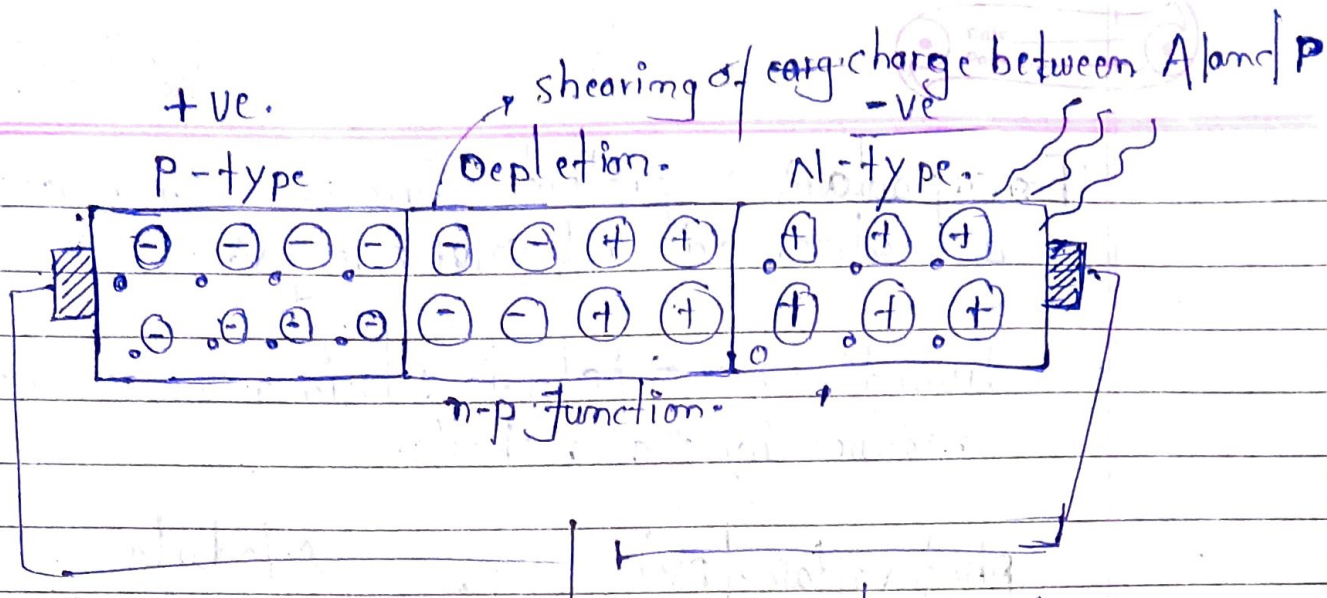 shearing of carg charge between Al and P
+ve.
-ve
P-type
Depletion.
N-type.
- - - - - - + + + + +
- - - - - - + + + + +
n-p Junction.